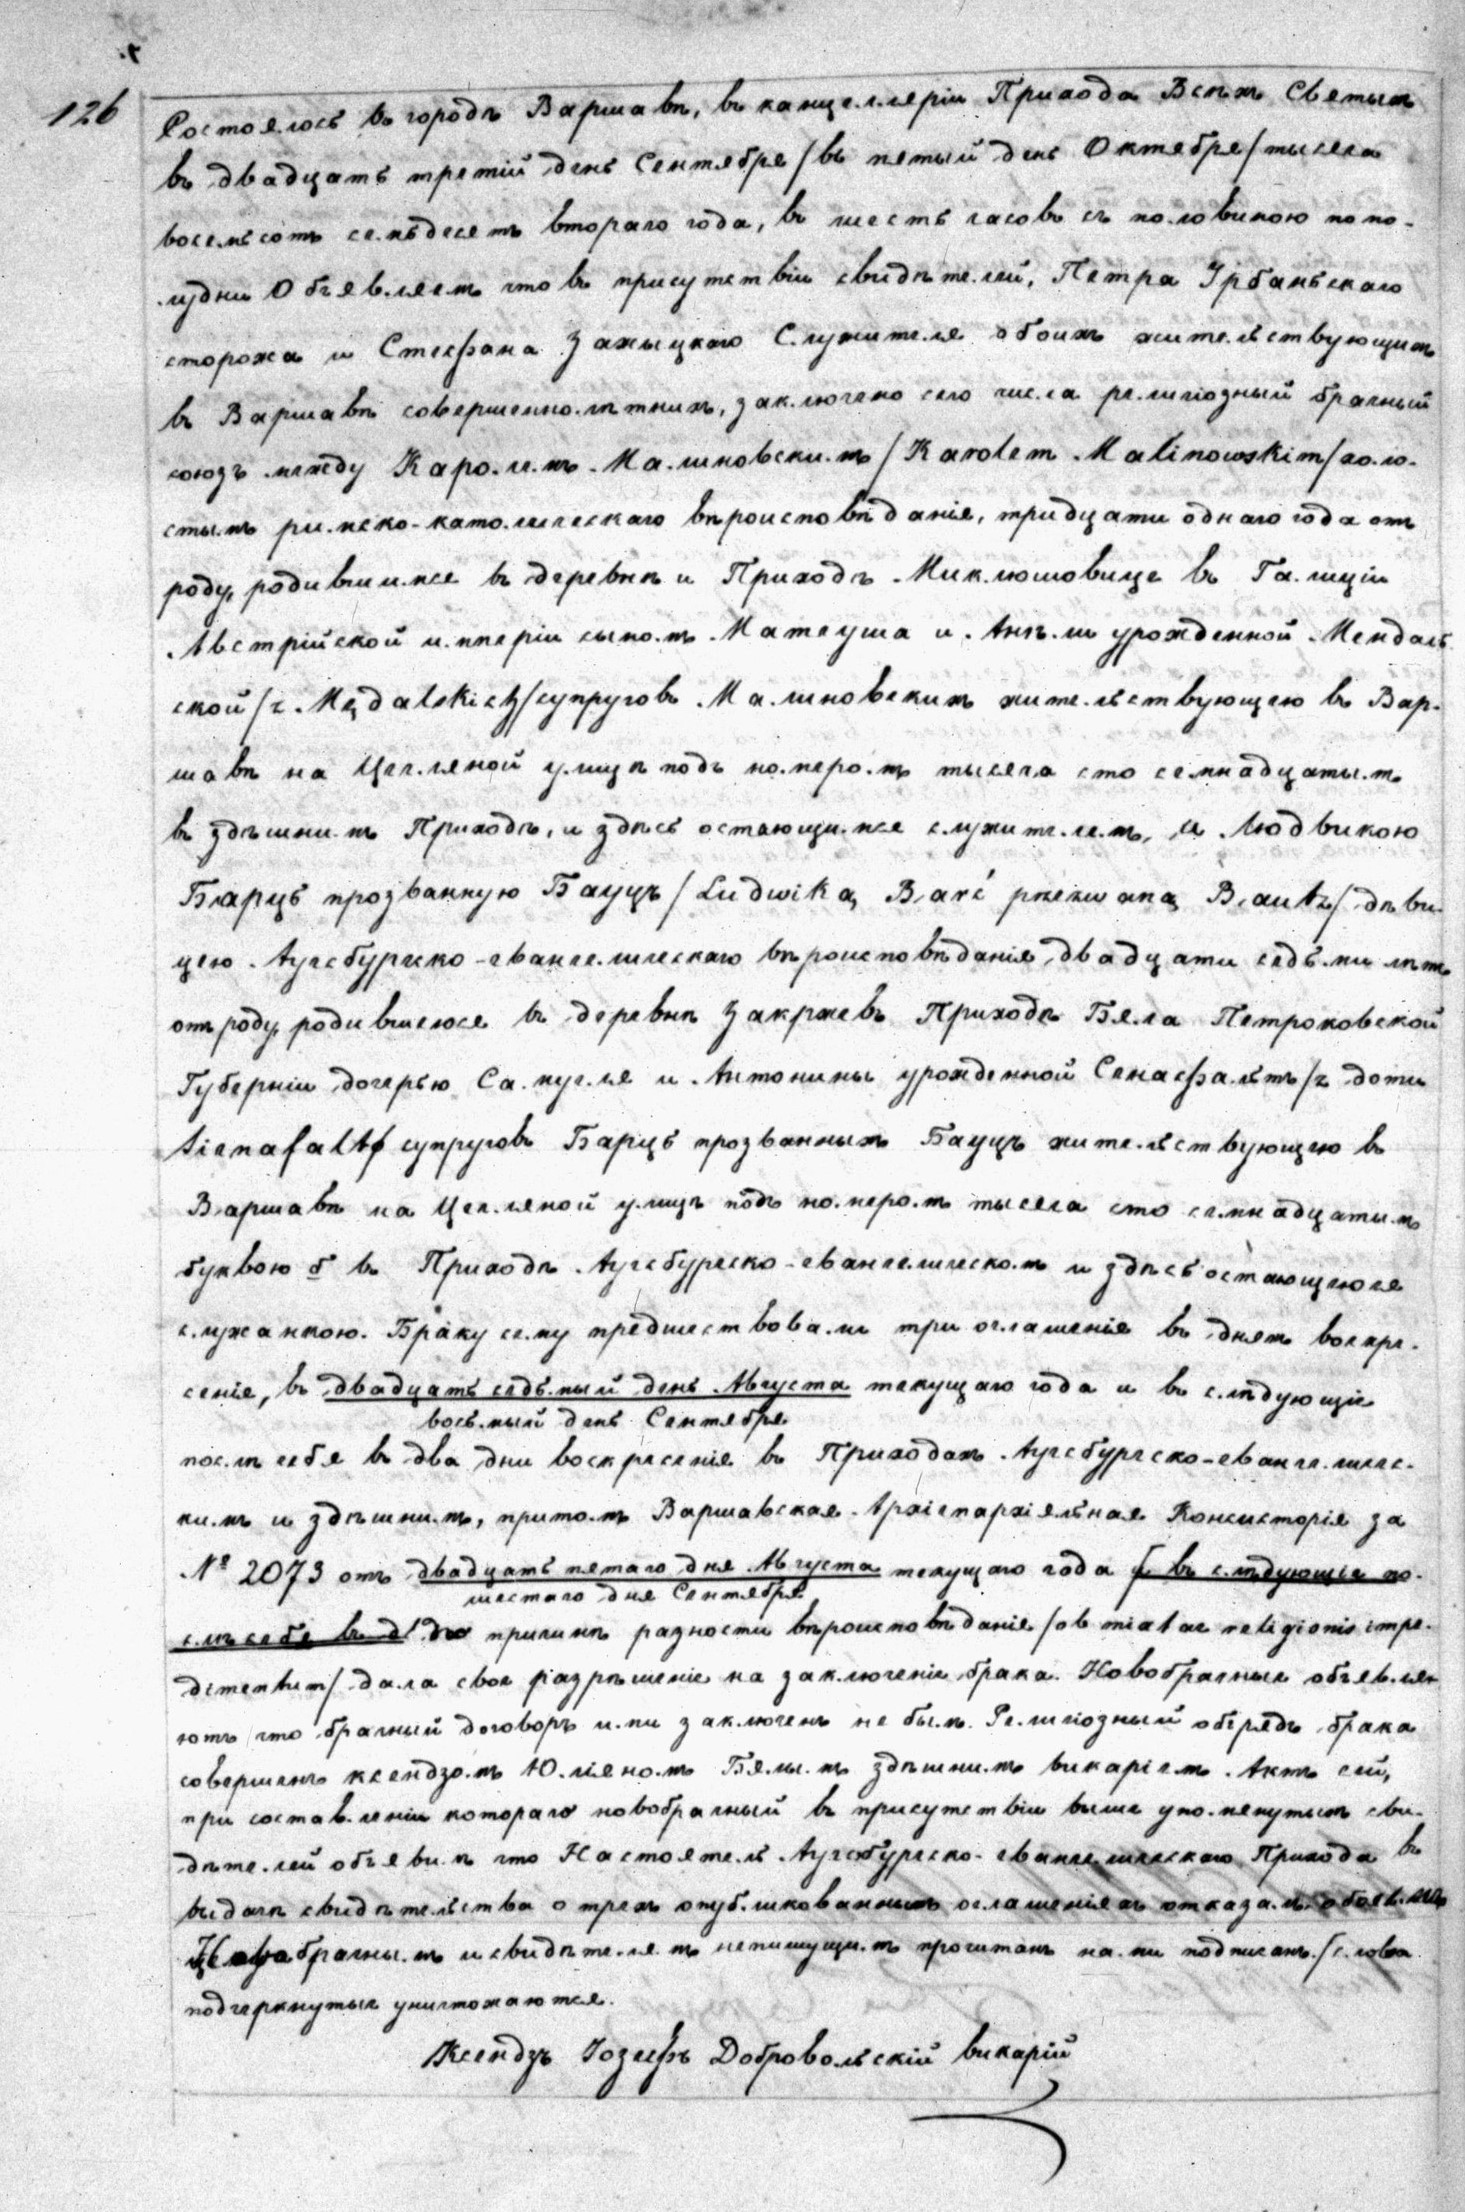 126
Состоялось въ городѣ Варшавѣ, въ канцелляріи Прихода Всѣхъ Святыхъ
въ двадцать третій день Сентября / въ пятый день Октября / тысяча
восемьсотъ семьдесятъ втораго года, въ шесть часовъ съ половиною попо-
лудни Объявляемъ что въ присутствіи свидѣтелей, Петра Урбаньскаго
сторожа и Стефана Зажыцкаго Служителя обоихъ жительствующихъ
въ Варшавѣ совершеннолѣтнихъ, заключено сего числа религіозный брачный
союзъ между Каролемъ Малиновскимъ / Karolem Malinowskim / холо-
стымъ римско-католическаго вѣроисповѣданія, тридцати однаго года отъ
роду, родившимся въ деревнѣ и Приходѣ Миклюшовице въ Галиціи
Австрійской имперіи сыномъ Матеуша и Анѣли урожденной Мендаль-
ской / z Mędalskich / супруговъ Малиновскихъ жительствующею въ Вар-
шавѣ на Цегляной улицѣ подъ номеромъ тысяча сто семнадцатымъ
въ здѣшнимъ Приходѣ, и здѣсь остающимся служителемъ, и Людвикою
Барць прозванную Бауцъ / Ludwiką Barć przezwaną Bautz / дѣви-
цею Аугсбургско-евангелическаго вѣроисповѣданія двадцати седьми лѣтъ
отъ роду, родившеюся въ деревнѣ Закржевъ Приходѣ Бяла Петроковской
Губерніи дочерью Самуеля и Антонины урожденной Сенафальтъ / z domu
Sienafalt / супруговъ Барць прозванныхъ Бауцъ жительствующею въ
Варшавѣ на Цегляной улицѣ подъ номеромъ тысяча сто семнадцатымъ
буквою б въ Приходѣ Аугсбургско-евангелическомъ и здѣсь остающеюся
служанкою. Браку сему предшествовали три оглашенія въ дняхъ воскре-
сенія, въ двадцать седьмый день Августа текущаго года и въ слѣдующіе
восьмый день Сентября
послѣ себя въ два дни воскресенія въ Приходахъ Аугсбургско-евангеличес-
кимъ и здѣшнимъ, притомъ Варшавская Архіепархіяльная Консисторія за
№ 2073 отъ двадцать пятаго дня Августа текущаго года въ слѣдующіе по-
шестаго дня Сентября
слѣ себя въ д до причинѣ разности вѣроисповѣданія / ob mixtae religionis impe-
dimentum / дала свое разрѣшеніе на заключеніе брака. Новобрачные объявля-
ютъ что брачный договоръ ими заключенъ не былъ. Религіозный обрядъ брака
совершенъ ксендзомъ Юліяномъ Бялымъ здѣшнимъ викаріемъ. Актъ сей,
при составленіи котораго новобрачный въ присутствіи выше упомянутыхъ сви-
дѣтелей объявилъ что Настоятель Аугсбургско-евангелическаго Прихода въ
выдачѣ свидѣтельства о трехъ опубликованныхъ оглашеніяхъ отказалъ,
Новобрачнымъ и свидѣтелямъ непишущимъ прочитанъ нами подписанъ. / слова
подчеркнутые уничтожаются.
Ксендзъ Іозефъ Добровольскій викарій